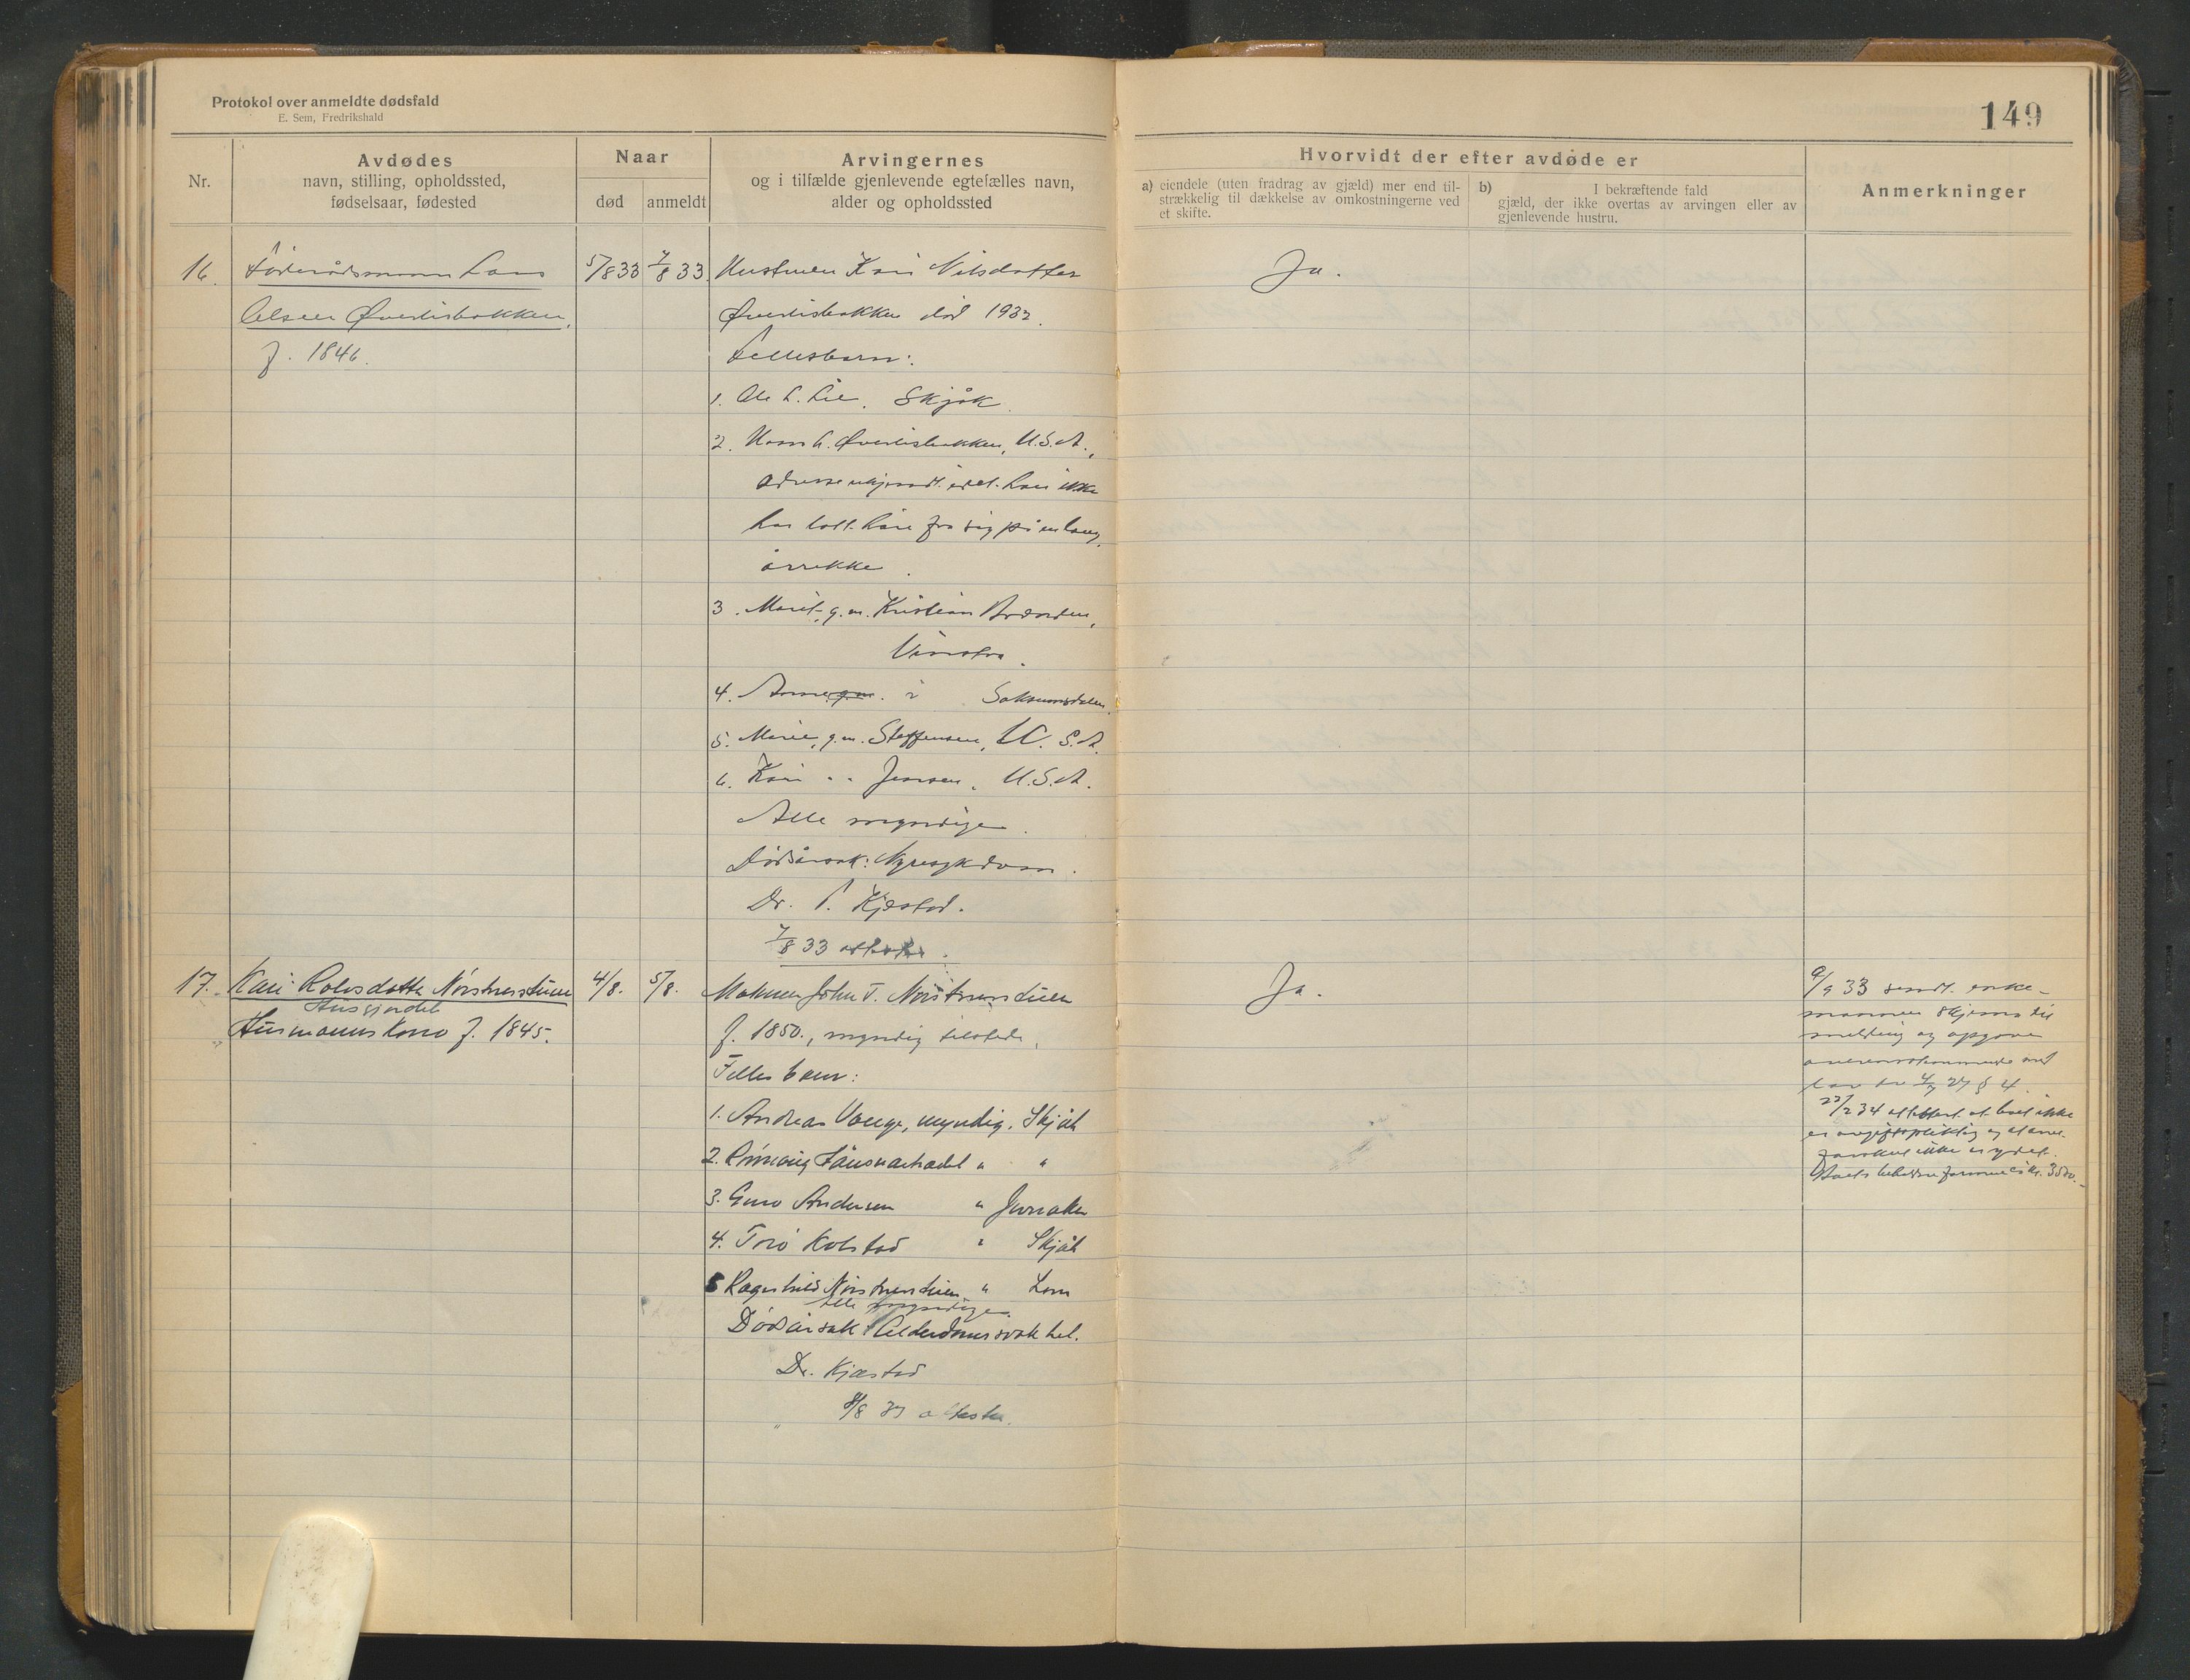 Protokol over anmeldte dødsfald
E. Sem, Fredrikshald
149
Nr.
Avdødes
navn, stilling, opholdssted,
fødselsaar, fødested
Naar
død
anmeldt
Arvingernes
og i tilfælde gjenlevende egtefælles navn,
alder og opholdssted
Hvorvidt der efter avdøde er
a) eiendele (uten fradrag av gjæld) mer end til-
strækkelig til dækkelse av omkostningerne ved
et skifte.
b) I bekræftende fald
gjæld, der ikke overtas av arvingen eller av
gjenlevende hustru.
Anmerkninger
16. Föderådsmann Lars
Olsen Øverlisbakken,
f. 1846.
5/8 33
7/8 33.
Hustruen Kari Nilsdatter
Øverlisbakken död 1932.
Fellesbarn:
1. Ole L. Lie, Skjåk.
2. Hans L. Øverlisbakken, U.S.A.,
adresse ukjendt idet han ikke
har latt höre fra sig på en lang
årrekke.
3. Marit, g.m. Kristian
Vinstra.
4. Anne g.m. i Saksumsdalen.
5. Marie, g.m. Steffensen, U.S.A.
6. Kari " " Jensen, U.S.A.
Alle myndige.
Dödsårsak: Nyresykdom.
Dr. Kjæstad.
7/8 33 attester.
Ja.
17. Kari Rolvsdatter Nörstnesstuen
Husgjordet
Husmannskone f. 1845.
4/8.
5/8.
Mannen John T. Nörstnesstuen
f. 1850., myndig tilstede.
Felles barn:
1. Andreas Vange, myndig. Skjåk
2. Rönnaug " "
3. Guro Andersen " Jevnaker
4. Trö Kolstad " Skjåk
5 Ragnhild Nörstnesstuen " Lom
Alle myndige.
Dödsårsak: Alderdomssvakhet.
Dr. Kjæstad
8/8 33 attester.
Ja.
9/9 33 sendt enke-
mannen skjema til
melding og opgave
overensstemmende med
lov av 4/7 27 § 4.
22/2 34 attestert at boet ikke
er avgiftspliktig og at arve-
forskud ikke er ydet.
Boets beholdne formue er kr. 3500.-